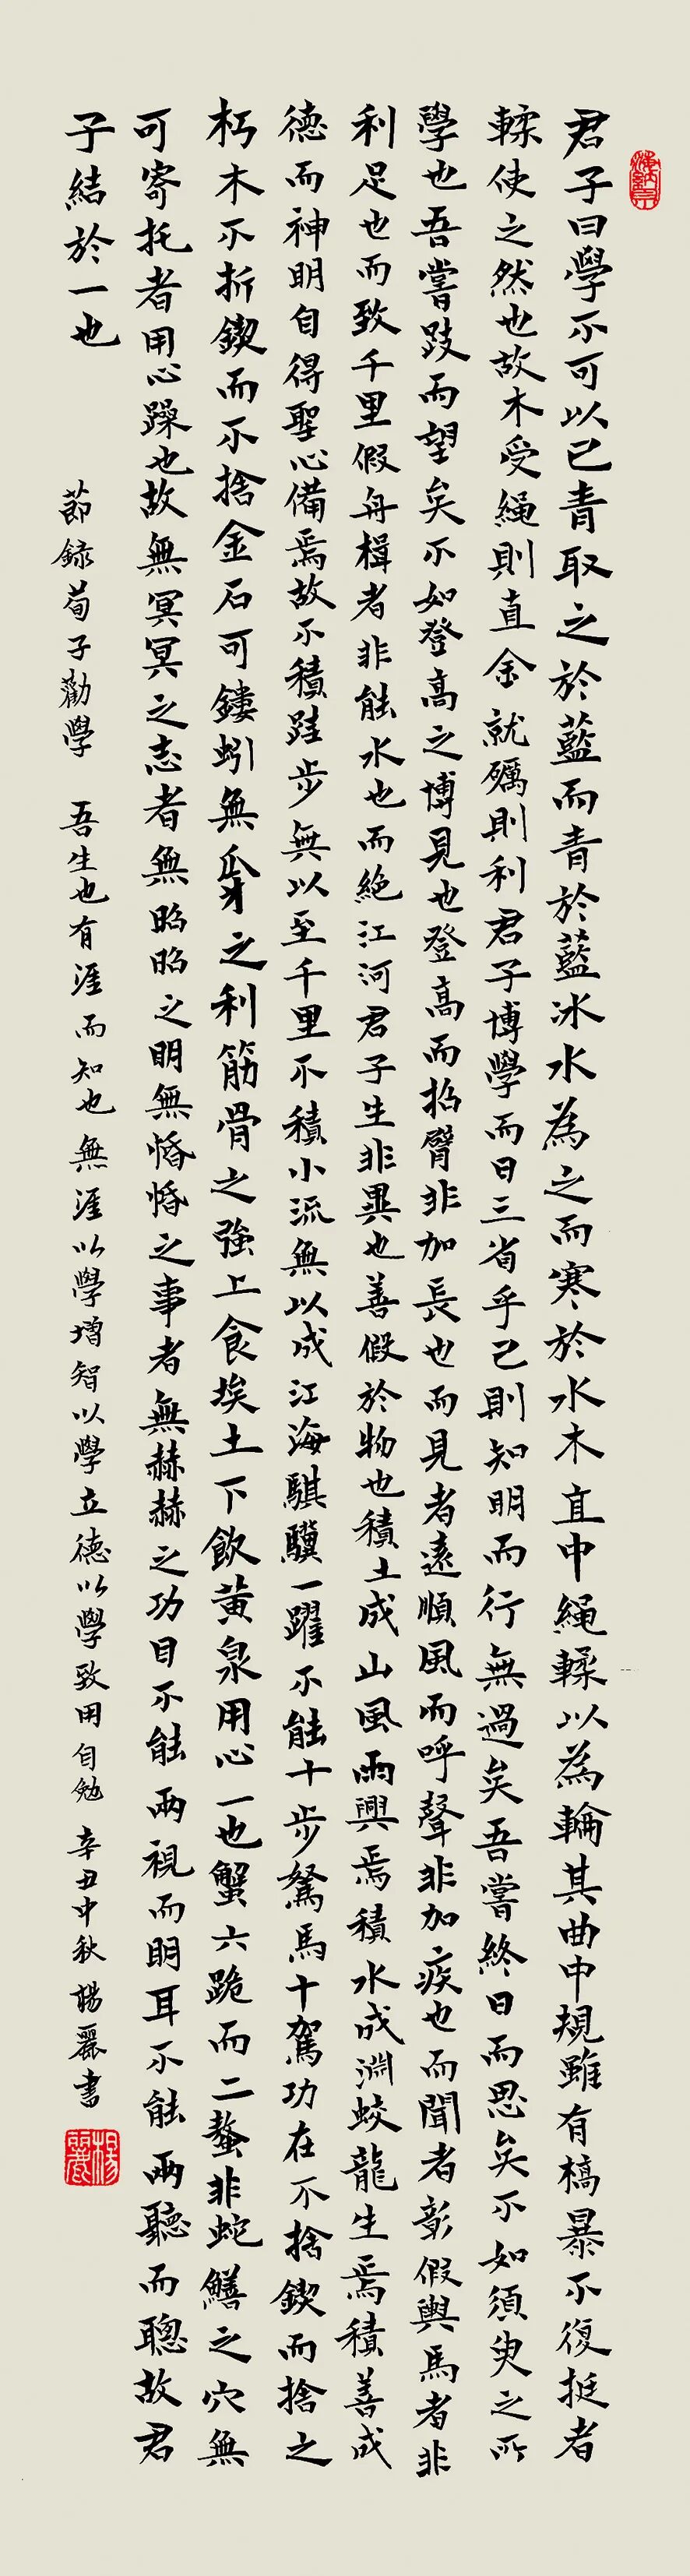 君子曰學不可以已青取之於藍而青於藍冰水為之而寒於水木直中繩輮以為輪其曲中規雖有槁暴不復挺者
輮使之然也故木受繩則直金就礪則利君子博學而日三省乎己則知明而行無過矣吾嘗終日而思矣不如須臾之所
學也吾嘗跂而望矣不如登高之博見也登高而招臂非加長也而見者遠順風而呼聲非加疾也而聞者彰假輿馬者非
利足也而致千里假舟楫者非能水也而絕江河君子生非異也善假於物也積土成山風雨興焉積水成淵蛟龍生焉積善成
德而神明自得聖心備焉故不積跬步無以至千里不積小流無以成江海騏驥一躍不能十步駑馬十駕功在不捨鍥而捨之
朽木不折鍥而不捨金石可鏤蚓無爪牙之利筋骨之強上食埃土下飲黃泉用心一也蟹六跪而二螯非蛇鱔之穴無
可寄托者用心躁也故無冥冥之志者無昭昭之明無惛惛之事者無赫赫之功目不能兩視而明耳不能兩聽而聰故君
子結於一也 節錄荀子勸學 吾生也有涯而知也無涯以學增智以學立德以學致用自勉 辛丑中秋楊麗書
楊麗